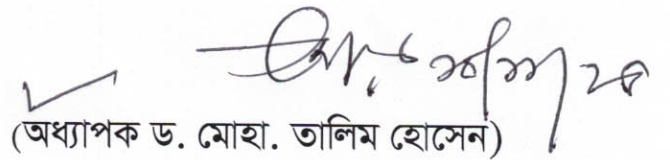 (অধ্যাপক ড. মোহা. তালিম হোসেন)